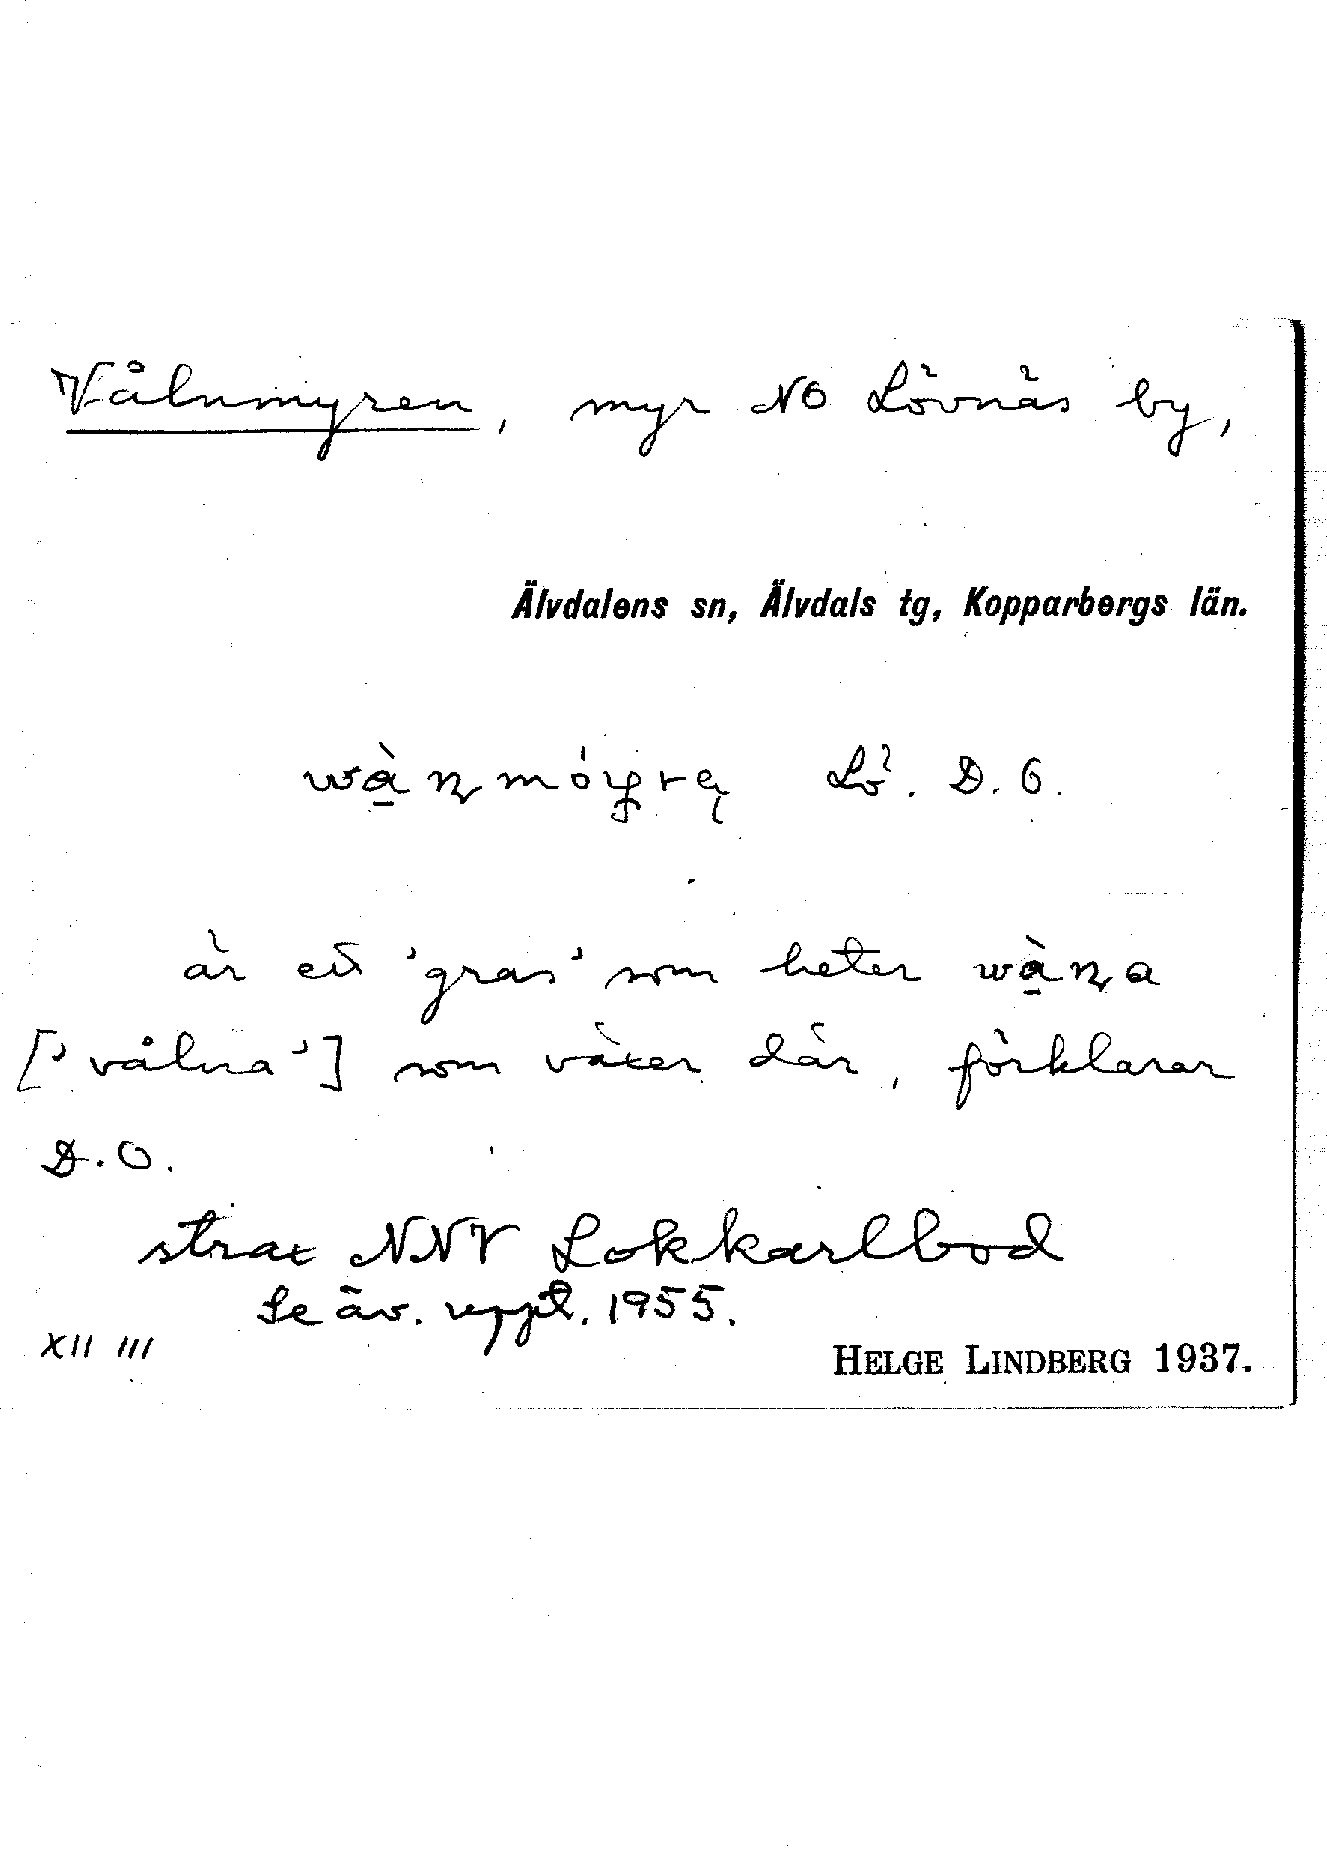 Vålnmyren, myr NO Lövnäs by,
Älvdalens sn, Älvdals tg, Kopparbergs län.
Lö. D. O.
är ett 'gras' som heter
['vålna'] som växer där, förklarar
D.O.
strax NNV Lokkarlbod
Se äv. uppt. 1955.
XII III
HELGE LINDBERG 1937.